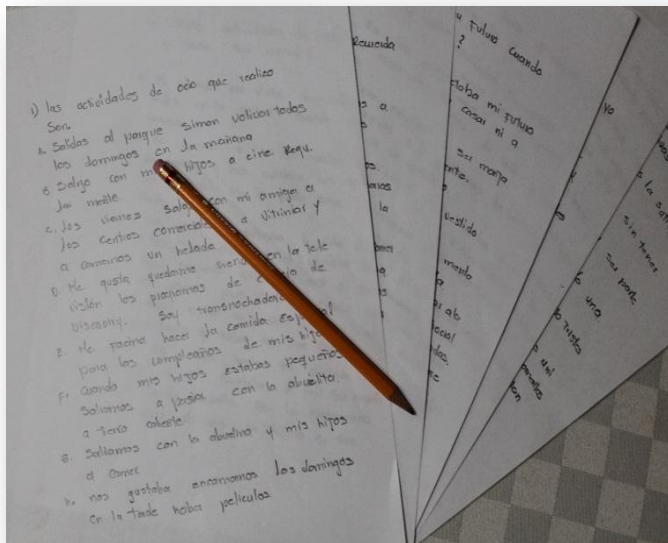 1) las actividades de ocio que realizo
Son.
A. Salidas al parque simon volivar todos
los domingos en la mañana
B. Salgo con mis hijos a cine.
mente
C. los viernes salgo con mi amiga a
los centros comerciales a vitriniar y
a comernos un helado
D. Me gusta quedarme viendo en la tele
visión los programas de
Discovry. Soy transnochadora
E. Me facina hacer la comida especial
para los cumpleaños de mis hijos
F. Cuando mis hijos estabas pequeños
Saliamos a pasiar con la abuelita
a tierra caliente
G. Saliamos con la abuelina y mis hijos
a comer
h. nos gustaba encamarnos los domingos
en la tarde haber peliculas
Recuerda
s a
s
os.
la
u Futuro cuando
?
taba mi Futuro
casar ni a
ser monja
nte.
vestido
mento
la
ocial
das.
yo
una
tristes
sin tener
ser parte